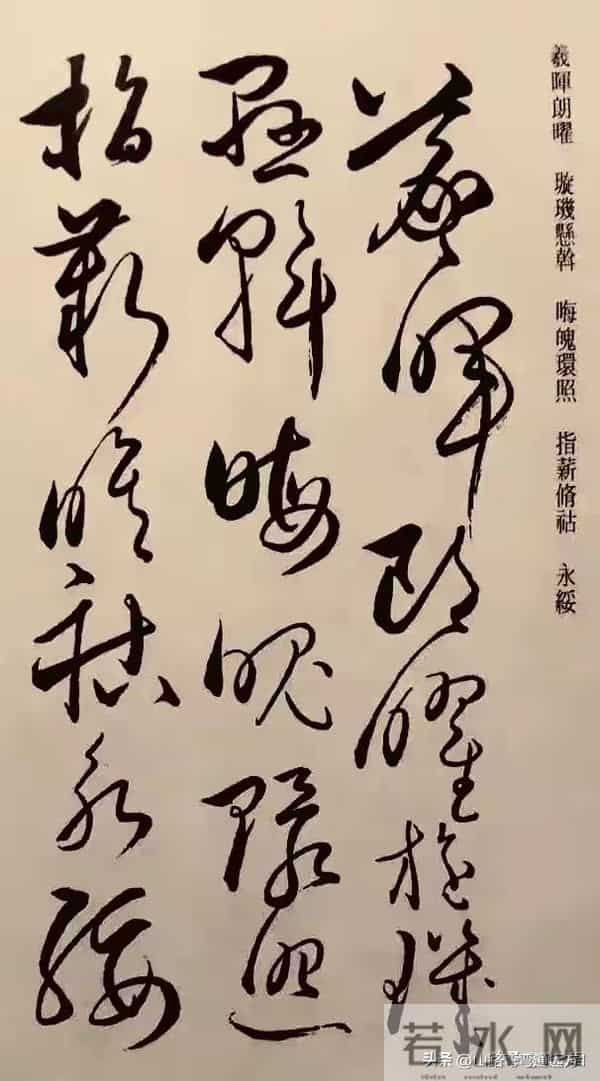 羲暉朗曜 璇璣懸斡 晦魄環照 指薪脩祜 永綏
羲暉朗曜璇璣
懸斡晦魄環照
指薪脩祜永綏
若水网
头条